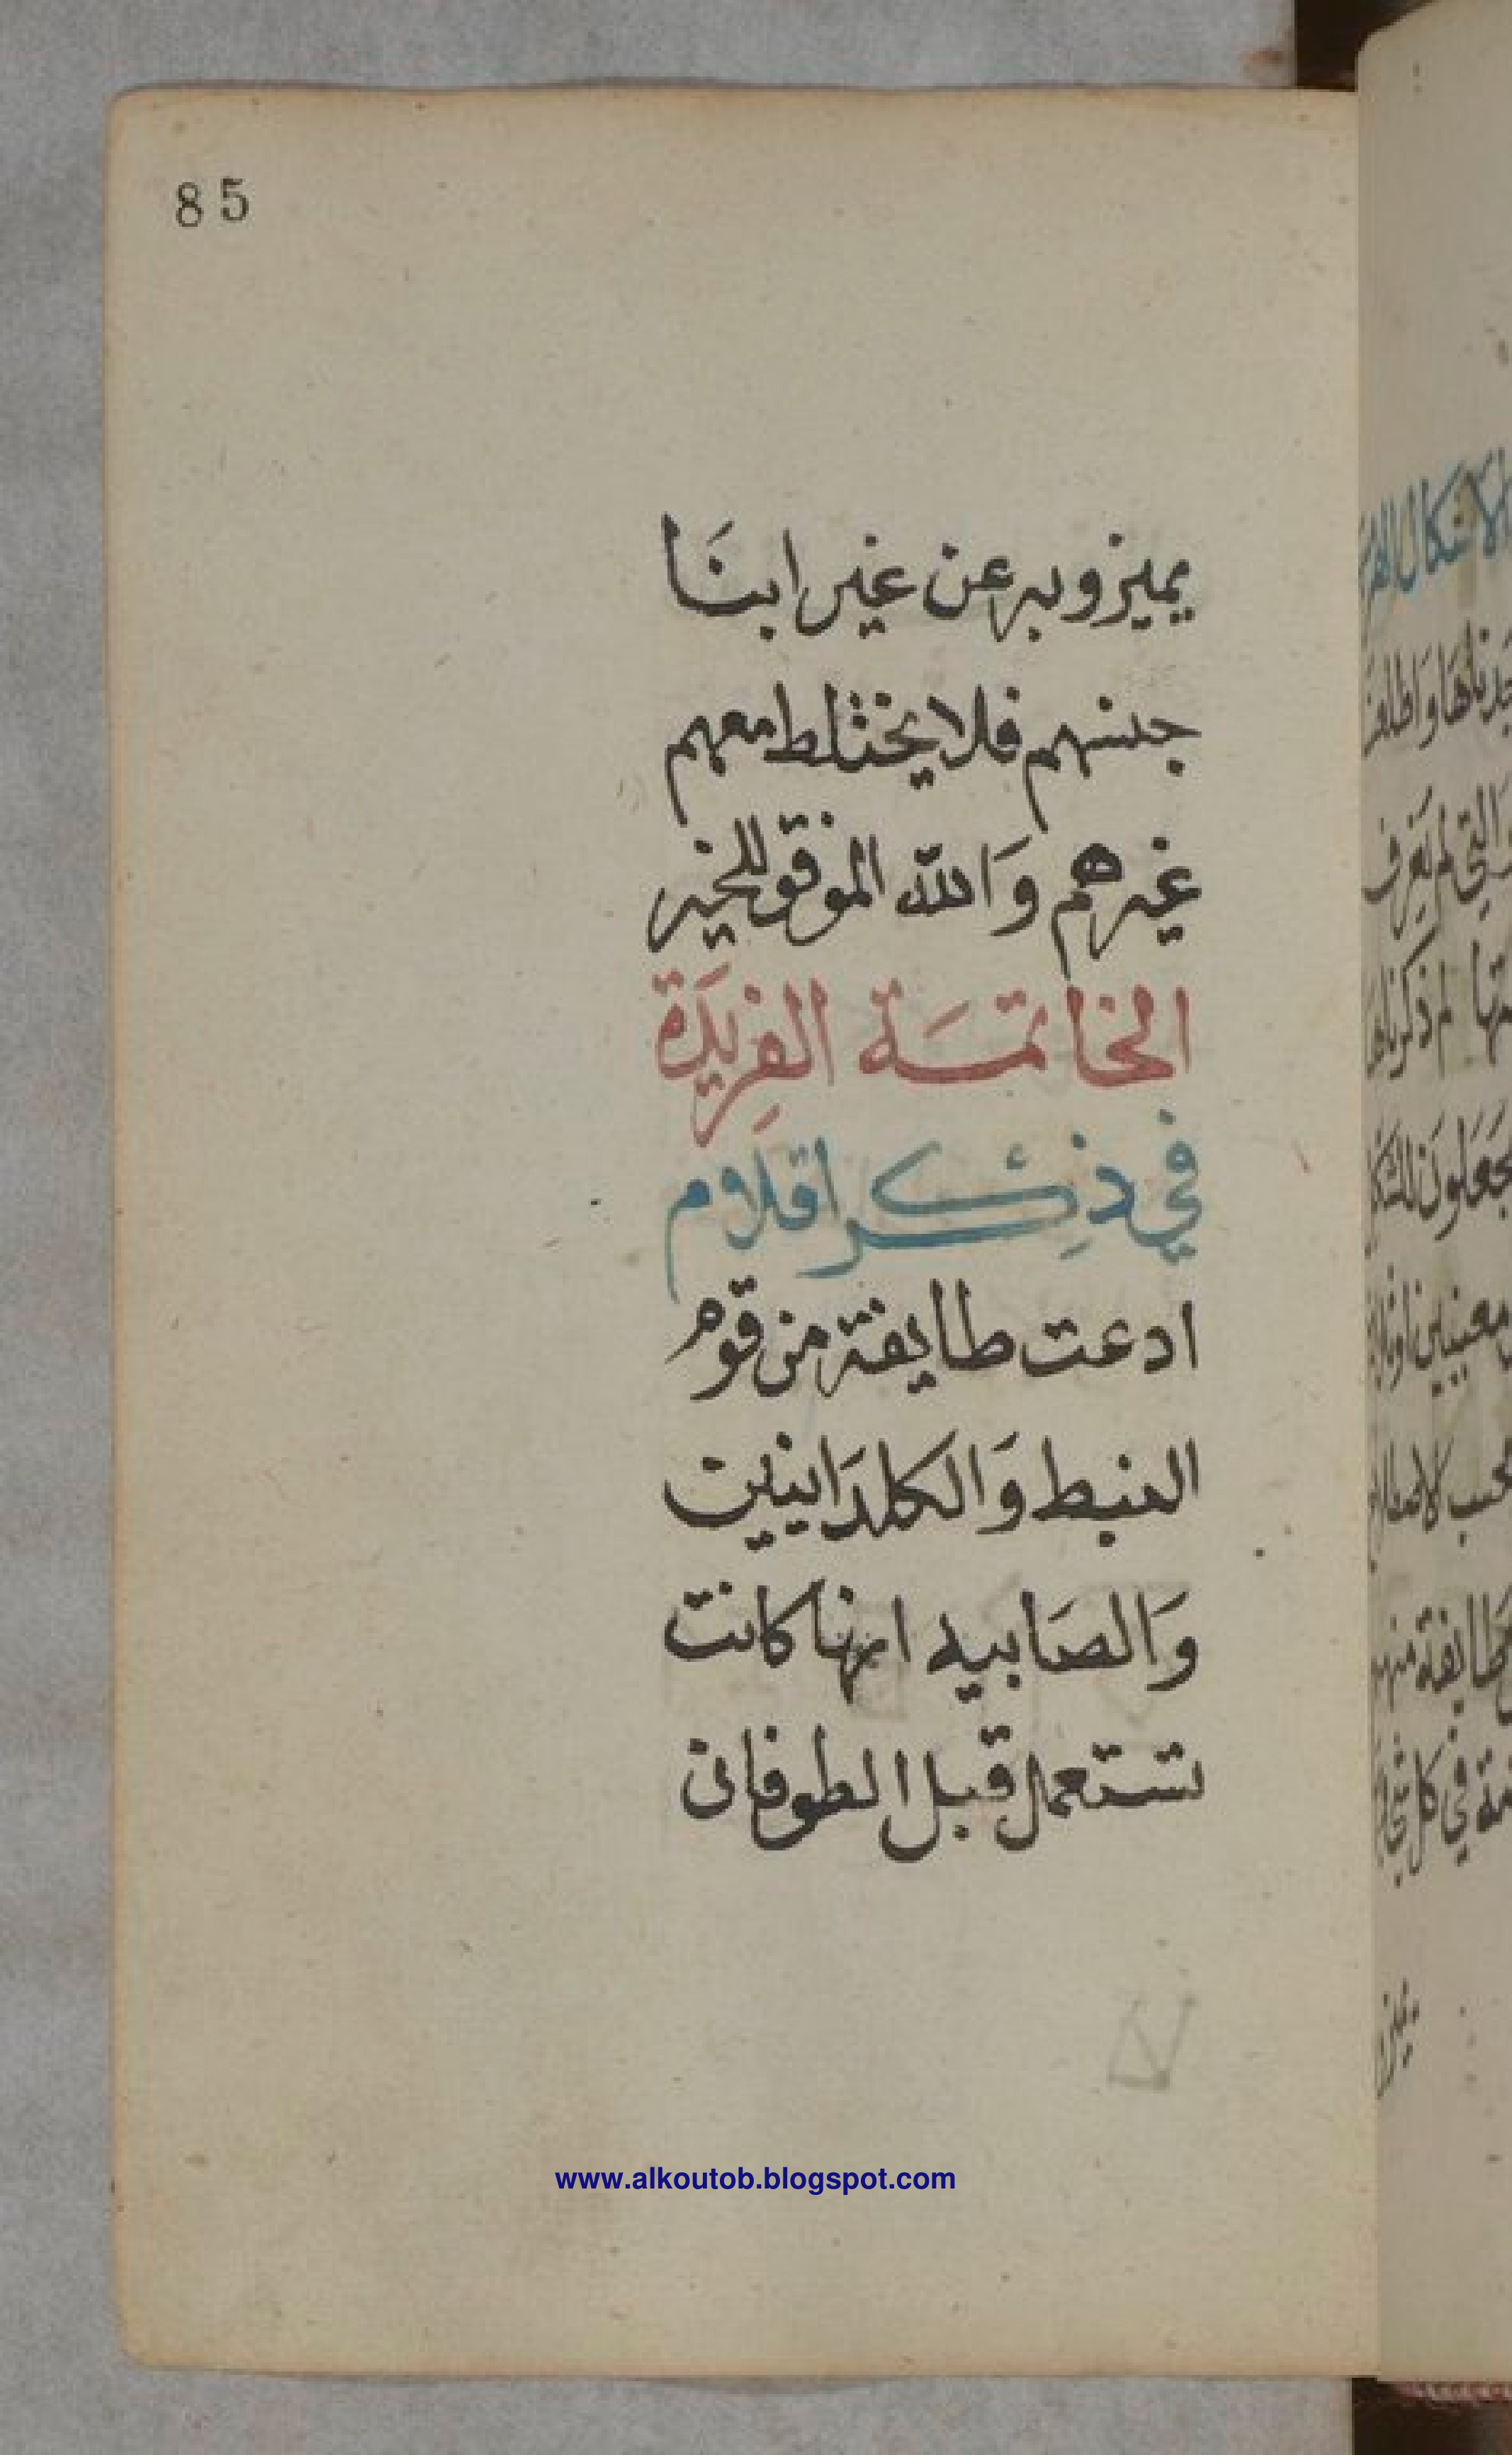 85
يميزو به عن غير ابنَا
جنسهم فلا يختلط معهم
غيرهم وَالله الموفق للخير
الخاتمَة الفرِيدَة
في ذِكر اقلام
ادعت طايفة من قوم
النبط وَالكلدَانيين
وَالصَابيه انها كانت
تستعمل قبل الطوفان
www.alkoutob.blogspot.com